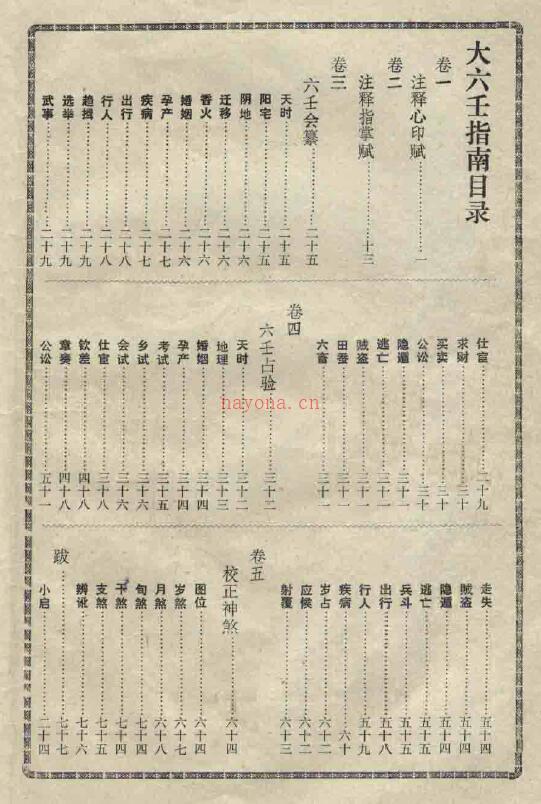 大六壬指南目录
卷一
注释心印赋……一
卷二
注释指掌赋……十三
卷三
六壬会纂……二十五
天时……二十五
阳宅……二十五
阴地……二十六
迁移……二十六
香火……二十六
婚姻……二十六
孕产……二十七
疾病……二十七
出行……二十八
行人……二十八
趋揖……二十九
选举……二十九
武事……二十九
仕宦……二十九
求财……三十
买卖……三十
公讼……三十
隐遁……三十一
逃亡……三十一
贼盗……三十一
田蚕……三十一
六畜……三十一
卷四
六壬占验……三十二
天时……三十二
地理……三十三
婚姻……三十四
孕产……三十四
考试……三十五
乡试……三十六
会试……三十六
仕宦……三十八
钦差……四十八
章奏……四十八
公讼……五十一
走失……五十四
贼盗……五十四
隐遁……五十四
逃亡……五十五
兵斗……五十五
出行……五十八
行人……五十九
疾病……六十
岁占……六十二
应候……六十二
射覆……六十三
卷五
校正神煞……六十四
图位……六十四
岁煞……六十七
月煞……六十八
旬煞……七十四
干煞……七十四
支煞……七十五
辨讹……七十六
跋……七十七
小启……二十四
hayona.cn